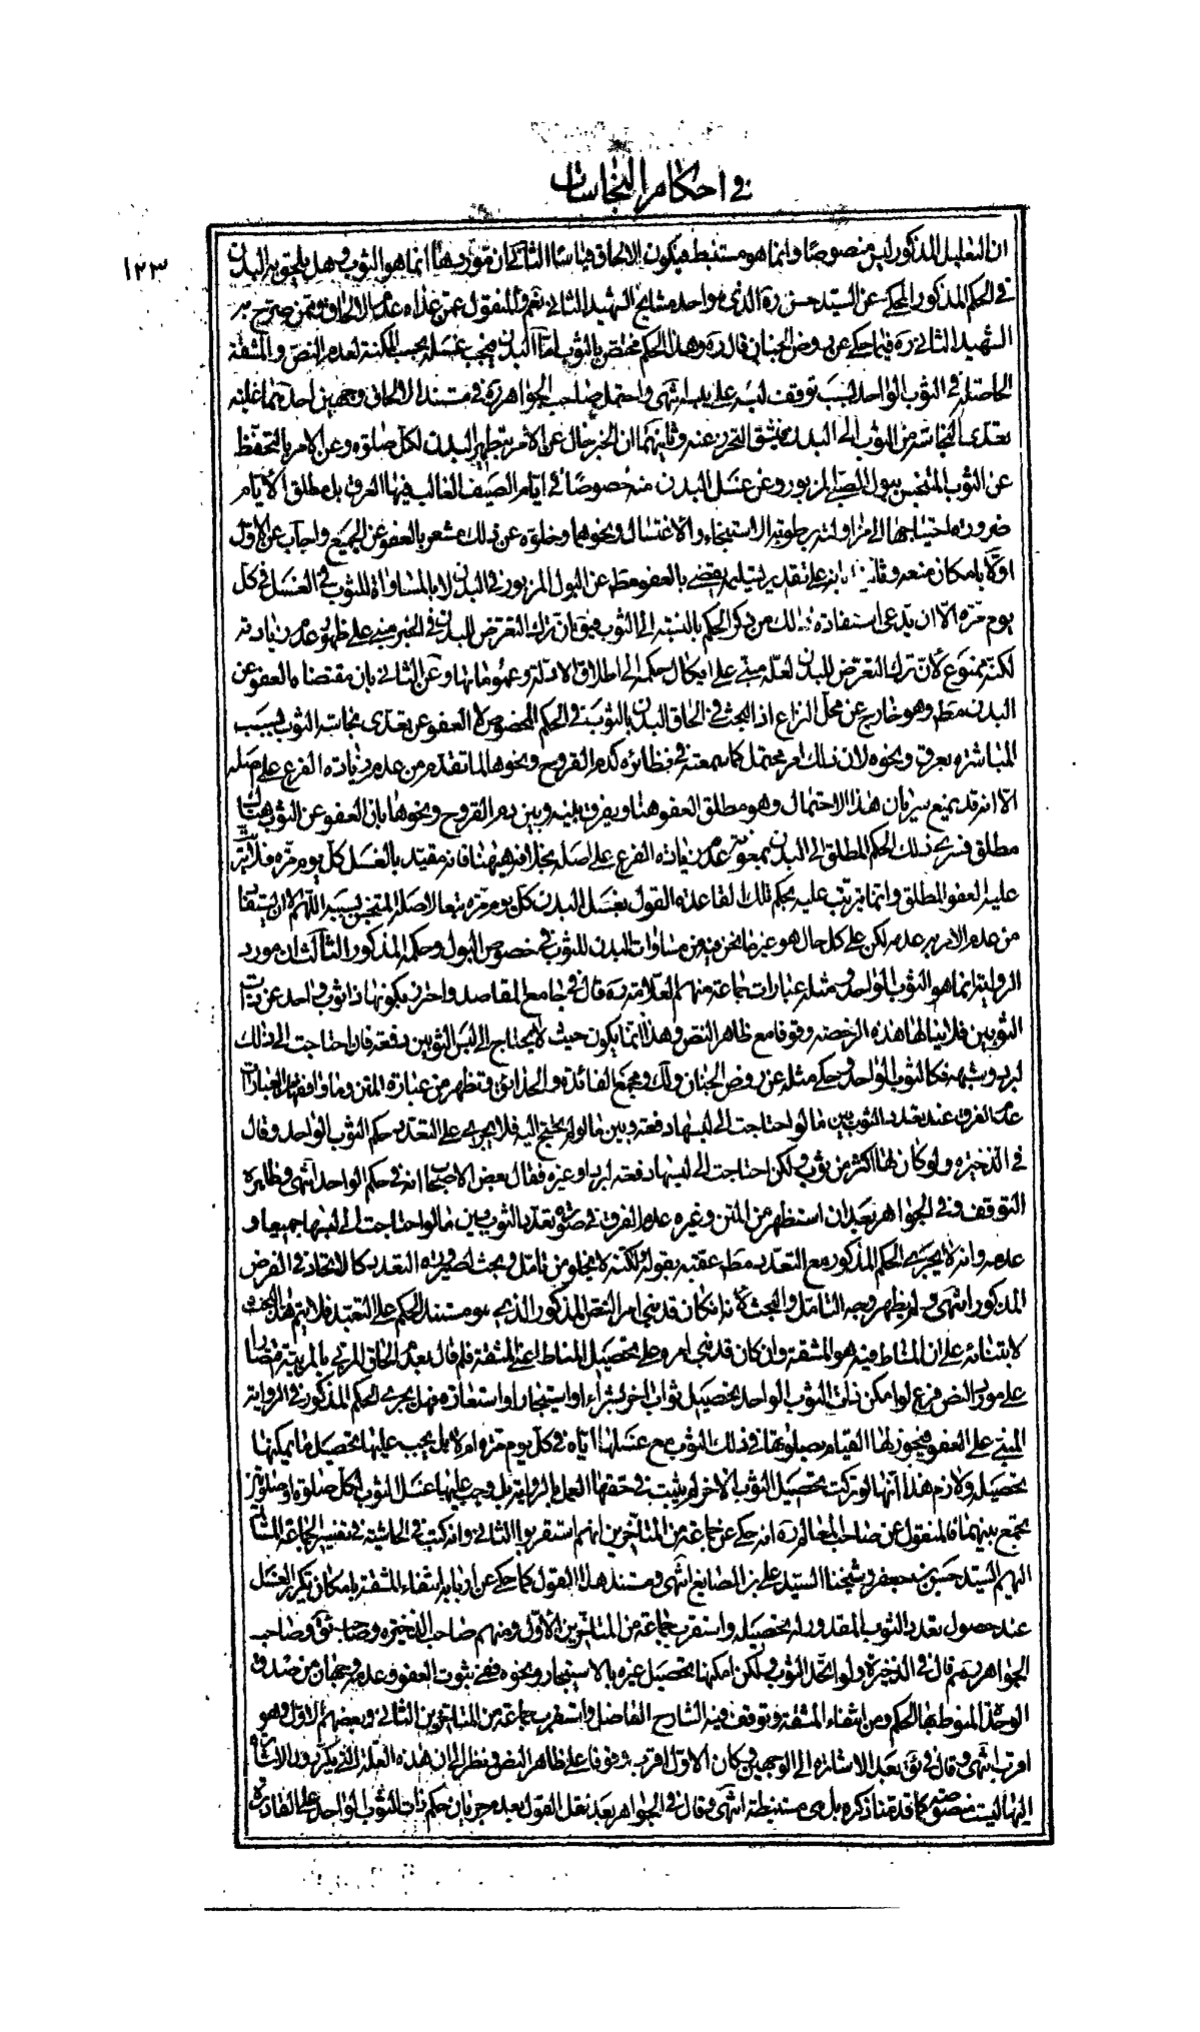 في احكام النجاسات
١٢٣
ان التعليل المذكور ليس منصوصًا وانما هو مستنبط فيكون الالحاق قياسًا الثاني ان موردها انما هو الثوب وهل يلحق به البدن
في الحكم المذكور المحكي عن السيد حسن ره الذي هو احد مشايخ الشهيد الثاني نعم والمنقول عمن عداه عدم الالحاق وممن صرح به
الشهيد الثاني ره فيما حكي عن روض الجنان قال ره وهذا الحكم مختص بالثوب امّا البدن فيجب غسله بحسب المكنة لعدم النص والمشقة
الحاصلة في الثوب الواحد لسبب توقف لبسه على يبسه انتهى واحتمل صاحب الجواهر ره في مستند الالحاق وجهين احدهما غلبة
تعدى النجاسة من الثوب الى البدن فيشق التحرز عنه وثانيهما ان الخبر خال عن الامر بتطهير البدن لكل صلوة وعن الامر بالتحفظ
عن الثوب المتنجس ببول الصبي المزبور وعن غسل البدن منه خصوصًا في ايام الصيف الغالب فيها العرق بل مطلق الايام
ضرورة احتياجها الى مزاولته برطوبة الاستنجاء والاغتسال ونحوهما وخلوّه عن ذلك مشعر بالعفو عن الجميع واجاب عن الاول
اولًا بامكان منعه وثانيا بانه على تقدير تسليمه يقضي بالعفو مطم عن البول المزبور في البدن لا بالمساواة للثوب في الغسل في كل
يوم مرّة الّا ان يدّعى استفادة ذلك من ذكر الحكم بالنسبة الى الثوب فيق بان ترك التعرض للبدن في الخبر مبني على ظهور عدم زيادته
لكنه ممنوع لانّ ترك التعرّض للبدن لعله مبنّي على ايكال حكمه الى اطلاق الادلة وعموماتها وعن الثاني بان مقتضاه العفو عن
البدن مطم وهو خارج عن محل النزاع اذ البحث في الحاق البدن بالثوب في الحكم المخصوص لا العفو عن تعدى نجاسة الثوب بسبب
المباشرة بعرق ونحوه لان ذلك امر محتمل كما سمعته في نظائره كدم القروح ونحوها لما تقدم من عدم زيادة الفرع على اصله
الا انه قد يمنع سريان هذا الاحتمال وهو مطلق العفو هنا ويفرق بينه وبين دم القروح ونحوها بان العفو عن الثوب هناك
مطلق فسرى ذلك الحكم المطلق الى البدن بمعونة عدم زيادة الفرع على اصله بخلافه هيهنا فانه مقيد بالغسل كل يوم مرّة فلا يترتب
عليه العفو المطلق وانما يترتب عليه بحكم تلك القاعدة القول بغسل البدن كل يوم مرّة تبعا لاصله المتنجس بسببه اللّهم الا ان يستفاد
من عدم الامر به عدمه لكن على كل حال هو غير ما نحن فيه من مساوات البدن للثوب في خصوص البول وحكمه المذكور الثالث ان مورد
الرواية انما هو الثوب الواحد ومثله عبارات جماعة منهم العلامة ره قال في جامع المقاصد واحترز بكونها ذا ثوب واحد عن ذات
الثوبين فلا ينالها هذه الرخصة وقوفا مع ظاهر النص وهذا انما يكون حيث لا يحتاج الى لبس الثوبين دفعة فان احتاجت الى ذلك
لبرد وشبهه فكالثوب الواحد وحكي مثله عن روض الجنان ولك ومجمع الفائدة والحدائق ويظهر من عبارة المتن وما وافقها من العبارات
عدم الفرق عند تعدد الثوب بين ما لو احتاجت الى لبسها دفعة وبين ما لو لم يحتج اليه فلا يجري على التعدد حكم الثوب الواحد وقال
في الذخيرة ولو كان لها اكثر من ثوب ولكن احتاجت الى لبسها دفعة لبرد او غيره فقال بعض الاصحاب انه في حكم الواحد انتهى وظاهره
التوقف وفي الجواهر بعد ان استظهر من المتن وغيره عدم الفرق في صورة تعدد الثوب بين ما لو احتاجت الى لبسها جميعا و
عدمه وانه لا يجري الحكم المذكور مع التعدد مطم عقبه بقوله ولكنه لا يخلو من تامل وبحث لصيرورة التعدد كالاتحاد في الفرض
المذكور انتهى ولم يظهر وجه التامل والبحث لانه ان كان قد بنى امر النص المذكور الذي هو مستند الحكم على التعبد فلا يتم هذا البحث
لابتنائه على ان المناط فيه هو المشقة وان كان قد بنى امره على تحصيل المناط اعني المشقة فلم قال بعدم الحاق المربي بالمربية قصرا
على مورد النص فرع لو امكن ذات الثوب الواحد تحصيل ثواب اخر بشراء او استيجار او استعارة فهل يجري الحكم المذكور في الرواية
المبني على العفو فيجوز لها القيام بصلوتها في ذلك الثوب مع غسلها اياه في كل يوم مرة ام لا بل يجب عليها تحصيل ما يمكنها
تحصيله ولازم هذا انها لو تركت تحصيل الثوب الاخر لم يثبت في حقها العمل بالرواية بل وجب عليها غسل الثوب لكل صلوة او صلوتين
يجمع بينهما فالمنقول عن صاحب المعالم ره انه حكي عن جماعة من المتاخرين انهم استقربوا الثاني وانه كتب في الحاشية في تفسير الجماعة المشار
اليهم السيد حسن بن جعفر وشيخنا السيد علي بن الصايغ انتهى ومستند هذا القول كما حكي عن اربابه انتفاء المشقة بامكان تكرير الغسل
عند حصول تعدد الثوب المقدور له تحصيله واستقرب جماعة من المتاخرين الاول ومنهم صاحب الذخيرة وصاحب ئق وصاحب
الجواهر رهم قال في الذخيرة ولو اتحد الثوب ولكن امكنها تحصيل غيره بالاستيجار ونحوه ففي ثبوت العفو وعدمه وجهان من صدق
الوحدة المنوط بها الحكم ومن انتفاء المشقة وتوقف فيه الشارح الفاضل واستقرب جماعة من المتاخرين الثاني وبعضهم الاول وهو
اقرب انتهى وقال في ئق بعد الاشارة الى الوجهين وكان الاول اقرب وقوفا على ظاهر النص ونظرا الى ان هذه العلة التي يكررون الاشارة
اليها ليست منصوصة كما قدمنا ذكره بل هي مستنبطة انتهى وقال في الجواهر بعد نقل القول بعدم جريان حكم ذات الثوب الواحد على القادرة